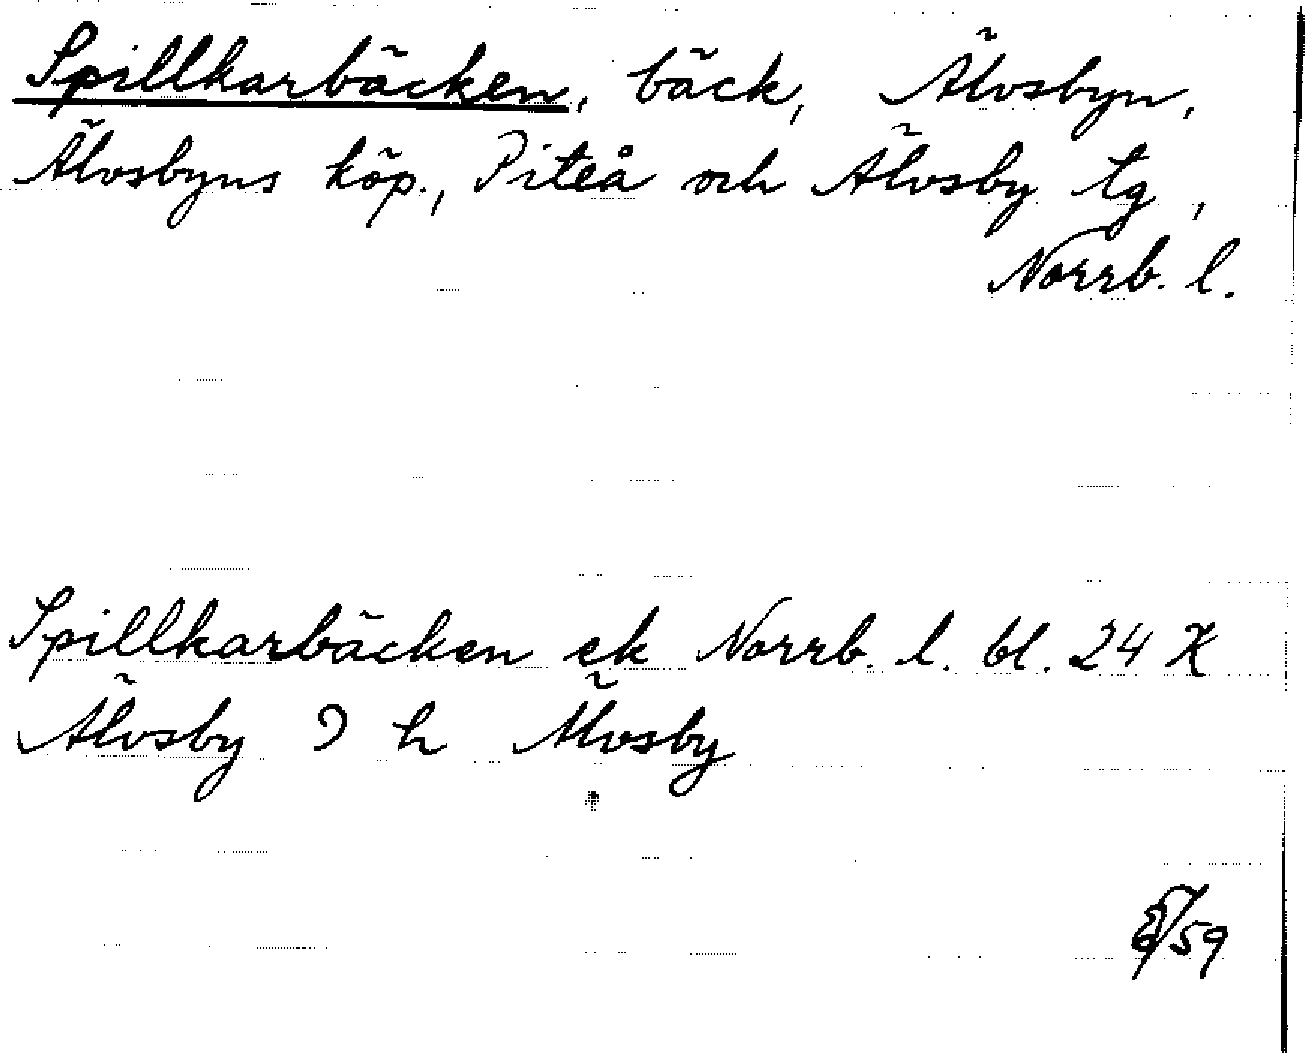 Spillkarbäcken, bäck, Älvsbyn,
Älvsbyns köp., Piteå och Älvsby tg,
Norrb. l.
Spillkarbäcken ek Norrb. l. bl. 24 X
Älvsby h Älvsby
/59